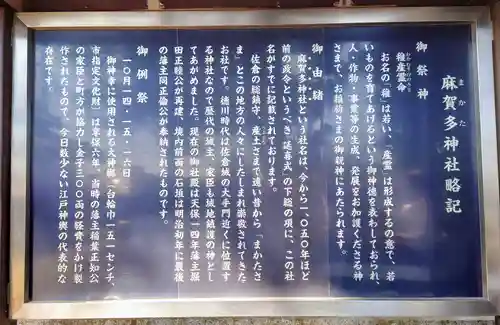 麻賀多神社略記
まかた
御祭神
わかむすびのみこと
稚産霊命
お名の「稚」は若い、「産霊」は形成するの意で、若
いものを育てあげるという御神徳を表わしておられ、
人・作物・事業等の生成、発展をお加護くださる神
さまで、お稲荷さまの御親神にあたられます。
御由緒
麻賀多神社という社名は、今から一、〇五〇年ほど
前の政令というべき「延喜式」の下総の項に、この社
名がすでに記載されております。
佐倉の総鎮守、産土さまで遠い昔から「まかたさ
ま」とこの地方の人々にしたしまれ崇敬されてきた
お社です。徳川時代は佐倉城の大手門近くに位置す
る神社なので歴代の城主、家臣も城地鎮護の神とし
てあがめました。現在の御社殿は天保一四年藩主堀
田正睦公が再建、境内前面の石垣は明治三年に最後
の藩主同正倫公が奉納されたものです。
御例祭
一〇月一四・一五・一六日
御神幸に使用される大神輿(台輪巾一五一センチ、
市指定文化財)は享保六年、当時の藩主稲葉正知公
の家臣と町方が協力し金子三〇〇両の経費をかけ製
作されたもので、今日数少ない江戸神輿の代表的な
存在です。